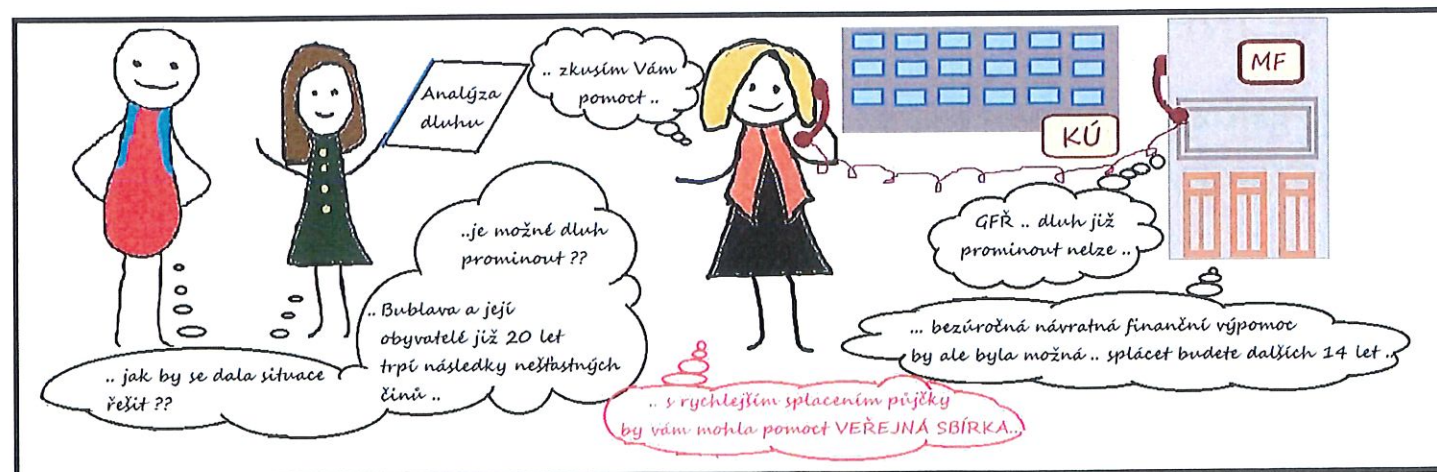 Analýza
dluhu
.. zkusím Vám
pomoct ..
KÚ
MF
..je možné dluh
prominout ??
.. Bublava a její
obyvatelé již 20 let
trpí následky nešťastných
činů ..
.. jak by se dala situace
řešit ??
GFŘ .. dluh již
prominout nelze ..
... bezúročná návratná finanční výpomoc
by ale byla možná .. splácet budete dalších 14 let ..
.. s rychlejším splacením půjčky
by vám mohla pomoct VEŘEJNÁ SBÍRKA..